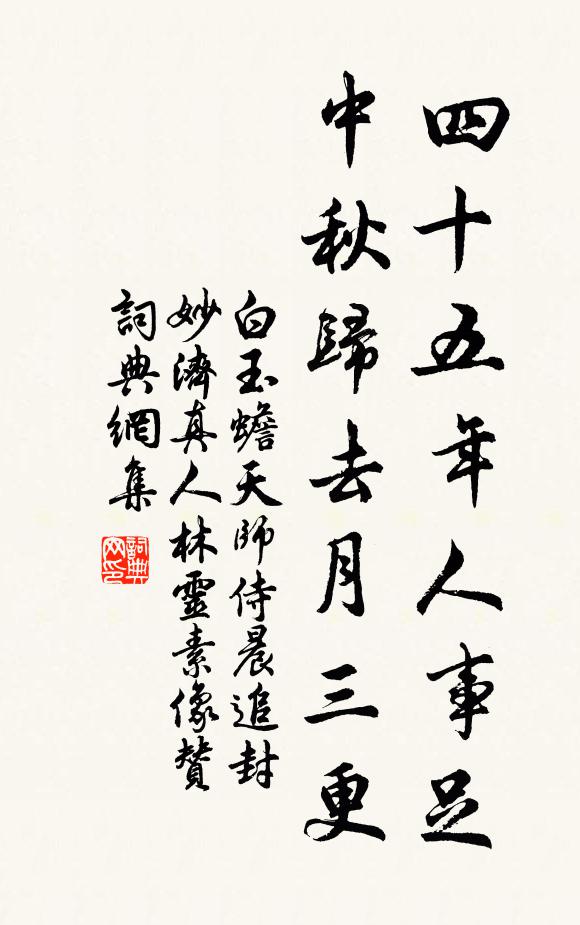 四十五年人事足
中秋歸去月三更
白玉蟾天師侍晨追封
妙濟真人林靈素像贊
詞典網集
詞典网印